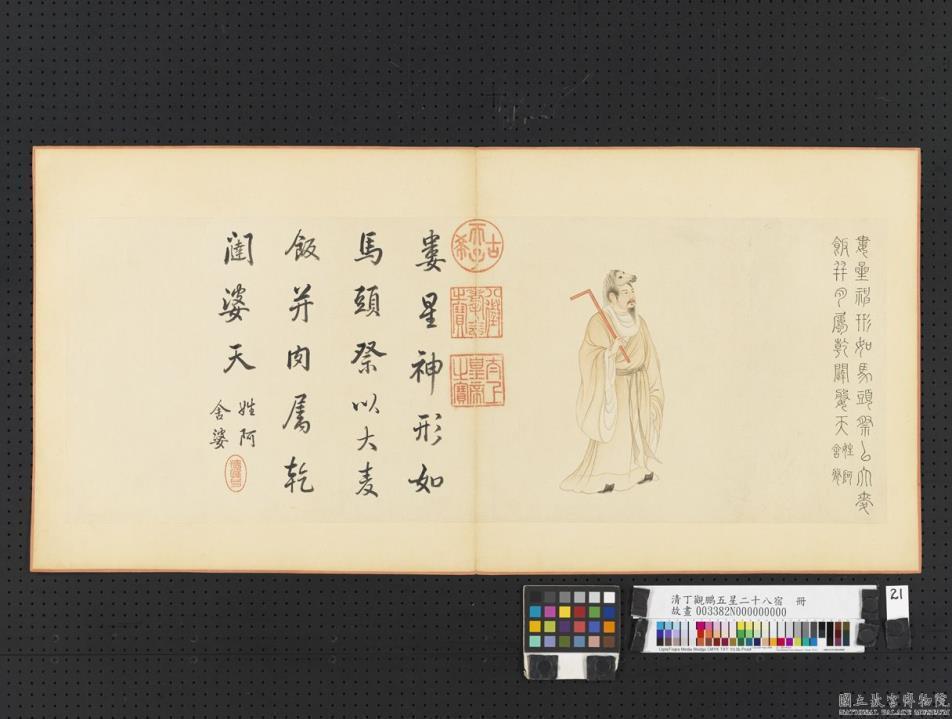 婁星神形如馬頭祭以大麦
飯并肉屬乾闥婆天姓阿
舍婆
婁星神形如
馬頭祭以大麦
飯并肉屬乾
闥婆天姓阿
舍婆
古希天子
八徵耄念之寶
太上皇帝之寶
乾隆
清丁觀鵬五星二十八宿 冊
故畫 003382N000000000
21
國立故宮博物院
NATIONAL PALACE MUSEUM